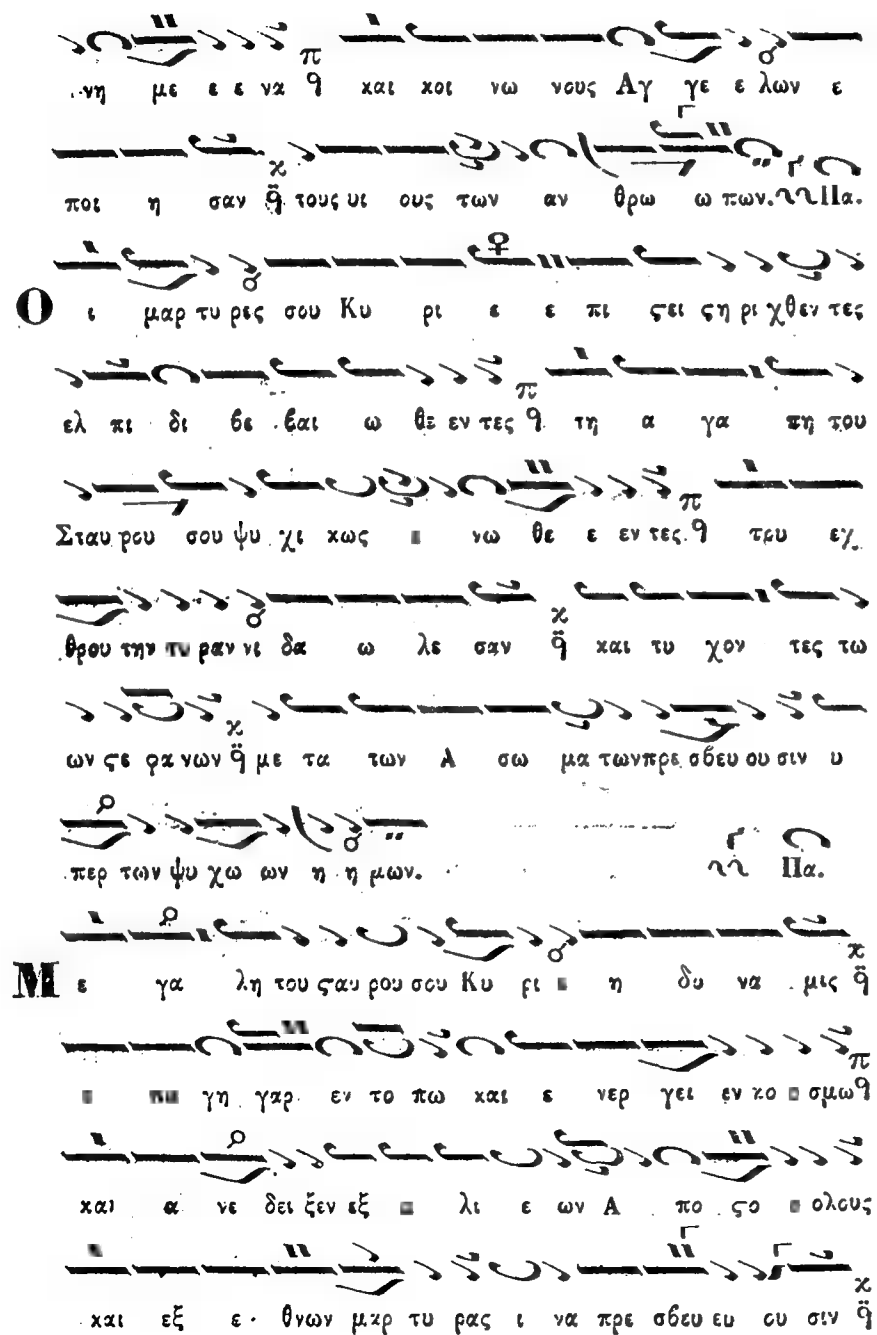 νη με ε ε να π ϙ και κοι νω νους Αγ γε ε λων ε
ποι η σαν κ ϙ̈ τους υι ους των αν θρω ω πων. Πα.
Ο ι μαρ τυ ρες σου Κυ ρι ε ε πι ςει ςη ρι χθεν τες
ελ πι δι βε βαι ω θε εν τες π ϙ τη α γα πη του
Σταυ ρου σου ψυ χι κως νω θε ε εν τες. π ϙ του εχ
θρου την τυ ραν νι δα ω λε σαν κ ϙ̈ και τυ χον τες τω
ων ςε φα νων κ ϙ̈ με τα των Α σω μα των πρε σβευ ου σιν υ
περ των ψυ χω ων η η μων. Πα.
Μ ε γα λη του ςαυ ρου σου Κυ ρι η δυ να μις κ ϙ̈
γη γαρ εν το πω και ε νερ γει εν κο σμω π ϙ
και α νε δει ξεν εξ λι ε ων Α πο ςο ολους
και εξ ε θνων μαρ τυ ρας ι να πρε σβευ ευ ου σιν κ ϙ̈